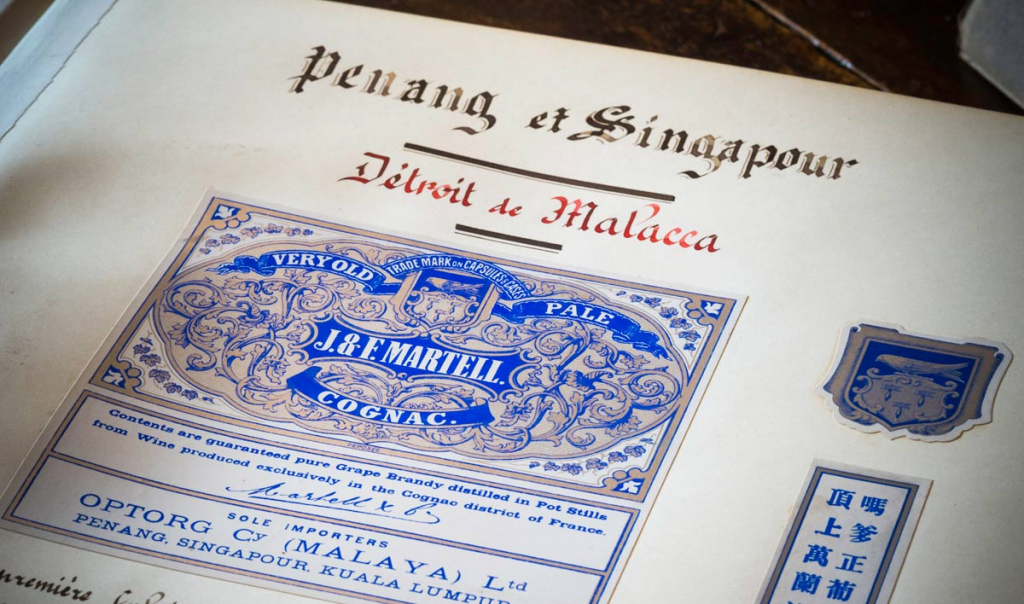 Penang et Singapour
Détroit de Malacca
VERY OLD
TRADE MARK ON CAPSULES & CASES
PALE
J. & F. MARTELL.
COGNAC.
Contents are guaranteed pure Grape Brandy distilled in Pot Stills
from Wine produced exclusively in the Cognac district of France.
Martell & Co
SOLE IMPORTERS
OPTORG Cy (MALAYA) Ltd
PENANG, SINGAPOUR, KUALA LUMPUR
première
嗎爹正葡
頂上萬蘭